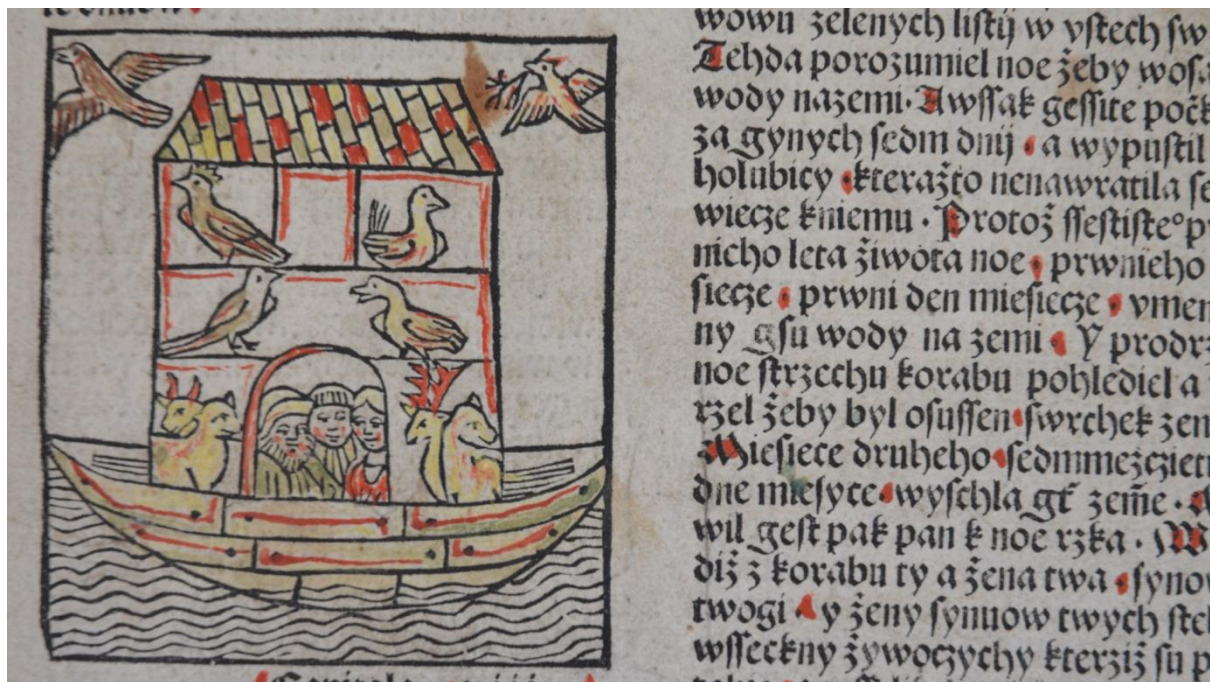 wowu zelenych listij w vstech sw
Tehda porozumiel noe žeby wosa
wody nazemi· Awssak gessite počk
za gynych sedm dnij · a wypustil
holubicy · kteražto nenawratila se
wiecze kniemu · Protož ssestisteº p
nicho leta žiwota noe · prwnieho
siecze · prwni den miesiecze · vmen
ny gsu wody na zemi · Y prodrz
noe strzechu korabu pohlediel a
rzel žeby byl osussen · swrchek zem
Miesiece druheho · sedmmezcziet
dne miesyce · wyschla gt̄ zem̄e ·
wil gest pak pan k noe rzka · W
diž z korabu ty a žena twa · syno
twogi · y ženy synuow twych
wsseckny žywoczychy kterziž su p